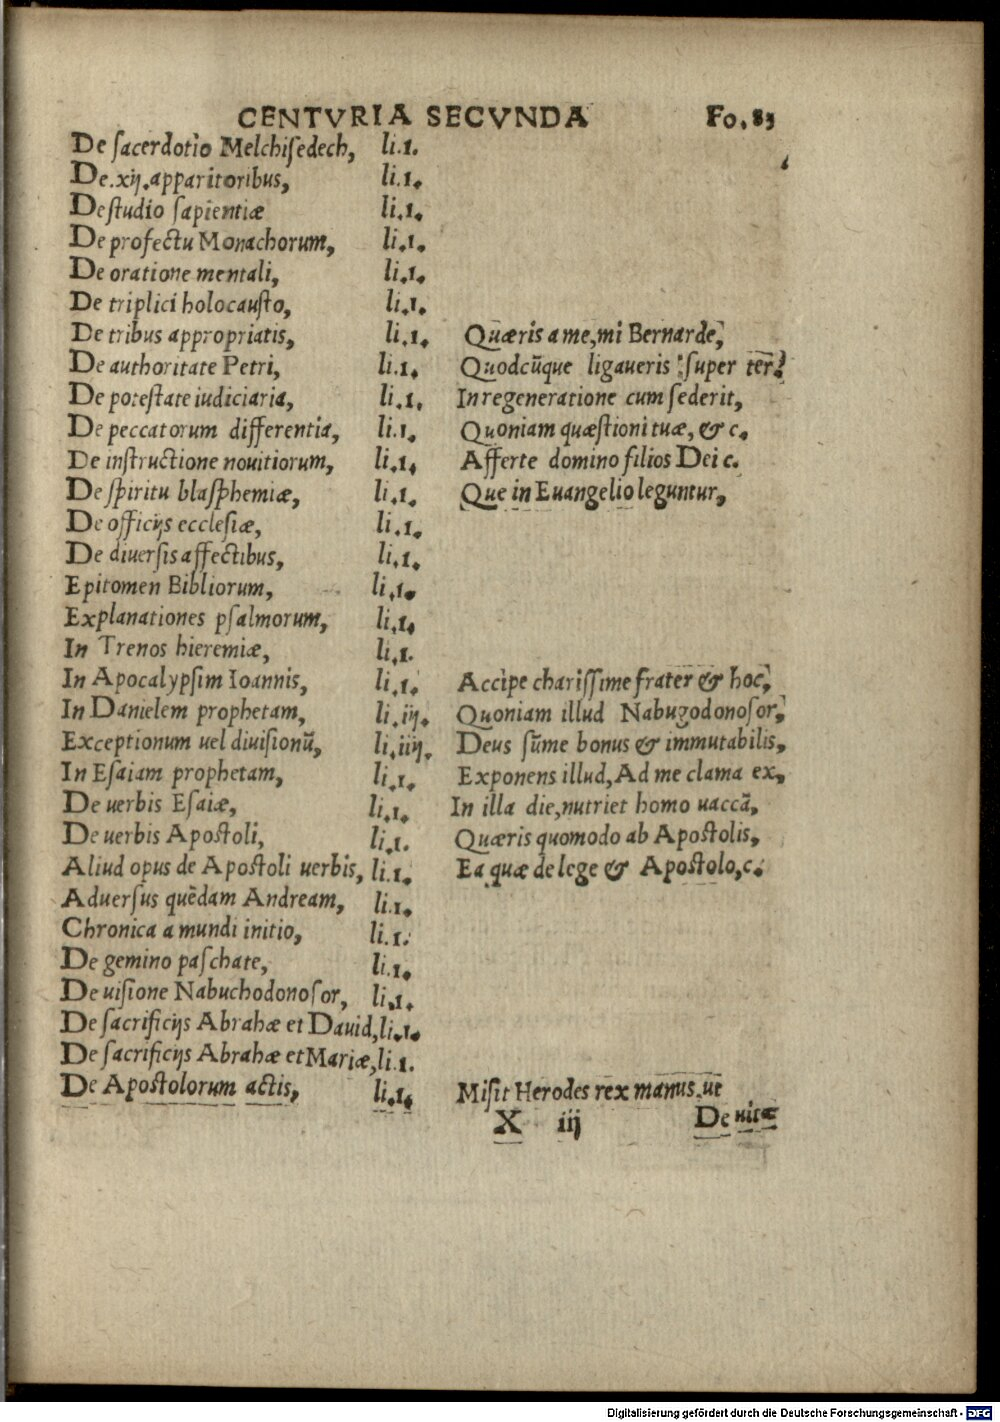 CENTVRIA SECVNDA Fo. 83
De sacerdotio Melchisedech, li.1.
De .xij. apparitoribus, li.1.
De studio sapientiæ li.1.
De profectu Monachorum, li.1.
De oratione mentali, li.1.
De triplici holocausto, li.1.
De tribus appropriatis, li.1. Quæris a me, mi Bernarde,
De authoritate Petri, li.1. Quodcũque ligaueris super
De potestate iudiciaria, li.1. In regeneratione cum sederit,
De peccatorum differentia, li.1. Quoniam quæstioni tuæ, & c.
De instructione nouitiorum, li.1. Afferte domino filios Dei c.
De spiritu blasphemiæ, li.1. Que in Euangelio leguntur,
De officijs ecclesiæ, li.1.
De diuersis affectibus, li.1.
Epitomen Bibliorum, li.1.
Explanationes psalmorum, li.1.
In Trenos hieremiæ, li.1.
In Apocalypsim Ioannis, li.1. Accipe charissime frater & hoc,
In Danielem prophetam, li.iij. Quoniam illud Nabugodonosor,
Exceptionum uel diuisionũ, li.iiij. Deus sũme bonus & immutabilis,
In Esaiam prophetam, li.1. Exponens illud, Ad me clama ex,
De uerbis Esaiæ, li.1. In illa die, nutriet homo uaccã,
De uerbis Apostoli, li.1. Quæris quomodo ab Apostolis,
Aliud opus de Apostoli uerbis, li.1. Ea quæ de lege & Apostolo, c.
Aduersus quẽdam Andream, li.1.
Chronica a mundi initio, li.1.
De gemino paschate, li.1.
De uisione Nabuchodonosor, li.1.
De sacrificijs Abrahæ et Dauid, li.1.
De sacrificijs Abrahæ et Mariæ, li.1.
De Apostolorum actis, li.1. Misit Herodes rex manus, ut
X iij De uitæ
Digitalisierung gefördert durch die Deutsche Forschungsgemeinschaft - DFG